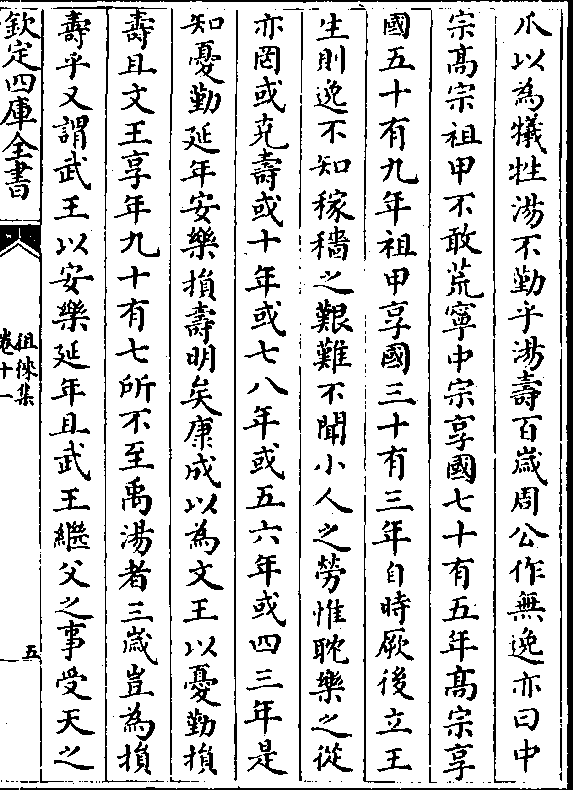 爪以為犧牲湯不勤乎湯壽百歲周公作無逸亦曰中
宗髙宗祖甲不敢荒寧中宗享國七十有五年髙宗享
國五十有九年祖甲享國三十有三年自時厥後立王
生則逸不知稼穡之艱難不聞小人之勞惟耽樂之從
亦罔或克壽或十年或七八年或五六年或四三年是
知憂勤延年安樂損壽明矣康成以為文王以憂勤損
壽且文王享年九十有七所不至禹湯者三歲豈為損
壽乎又謂武王以安樂延年且武王繼父之事受天之
欽定四庫全書
徂徠集
卷十一
五